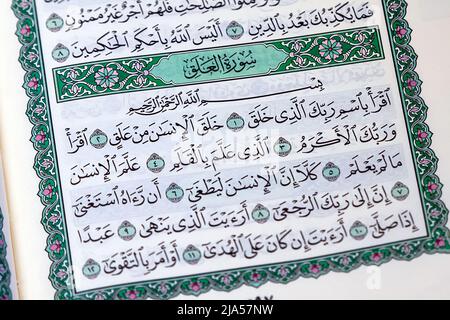 ءَامَنُوا۟ وَعَمِلُوا۟ ٱلصَّـٰلِحَـٰتِ فَلَهُمْ أَجْرٌ غَيْرُ مَمْنُونٍ ٦
فَمَا يُكَذِّبُكَ بَعْدُ بِٱلدِّينِ ٧ أَلَيْسَ ٱللَّهُ بِأَحْكَمِ ٱلْحَـٰكِمِينَ ٨
سُورَةُ العَلَقِ
بِسْمِ ٱللَّهِ ٱلرَّحْمَـٰنِ ٱلرَّحِيمِ
ٱقْرَأْ بِٱسْمِ رَبِّكَ ٱلَّذِى خَلَقَ ١ خَلَقَ ٱلْإِنسَـٰنَ مِنْ عَلَقٍ ٢ ٱقْرَأْ
وَرَبُّكَ ٱلْأَكْرَمُ ٣ ٱلَّذِى عَلَّمَ بِٱلْقَلَمِ ٤ عَلَّمَ ٱلْإِنسَـٰنَ
مَا لَمْ يَعْلَمْ ٥ كَلَّآ إِنَّ ٱلْإِنسَـٰنَ لَيَطْغَىٰٓ ٦ أَن رَّءَاهُ ٱسْتَغْنَىٰٓ ٧
إِنَّ إِلَىٰ رَبِّكَ ٱلرُّجْعَىٰٓ ٨ أَرَءَيْتَ ٱلَّذِى يَنْهَىٰ ٩ عَبْدًا
إِذَا صَلَّىٰٓ ١٠ أَرَءَيْتَ إِن كَانَ عَلَى ٱلْهُدَىٰٓ ١١ أَوْ أَمَرَ بِٱلتَّقْوَىٰٓ ١٢
٥٩٧
alamy
Image ID: 2JA57NW
www.alamy.com